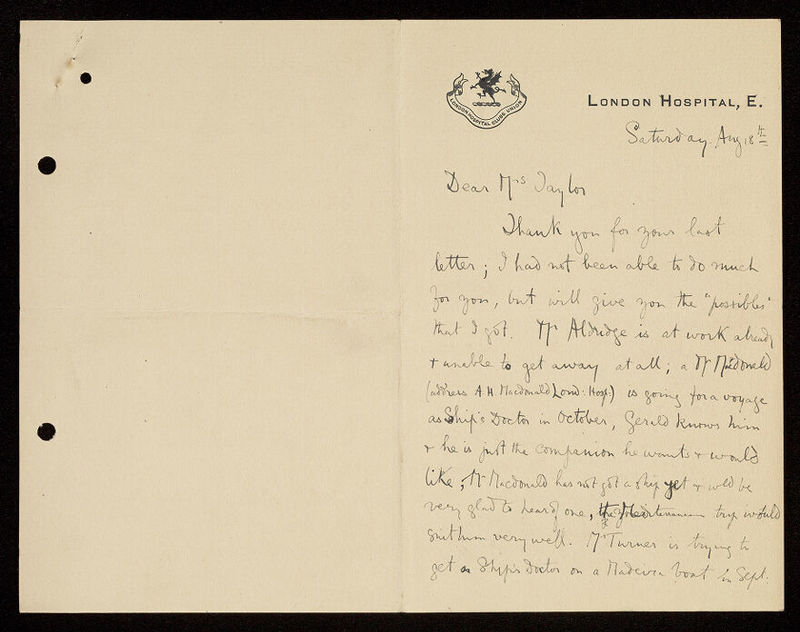 LONDON HOSPITAL CLUBS UNION
LONDON HOSPITAL, E.
Saturday Aug 18th
Dear Mrs Taylor
Thank you for your last
letter; I had not been able to do much
for you, but will give you the "possibles"
that I got. Mr Aldridge is at work already
+ unable to get away at all; a Mr Macdonald
(address A.H. Macdonald Lond: Hosp:) is going for a voyage
as Ship's Doctor in October, Gerald knows him
+ he is just the companion he wants + would
like, Mr Macdonald has not got a ship yet + wld be
very glad to hear of one, the Mediterranean trip would
suit him very well. Mr Turner is trying to
get a Ship's Doctor on a Madeira boat in Sept.